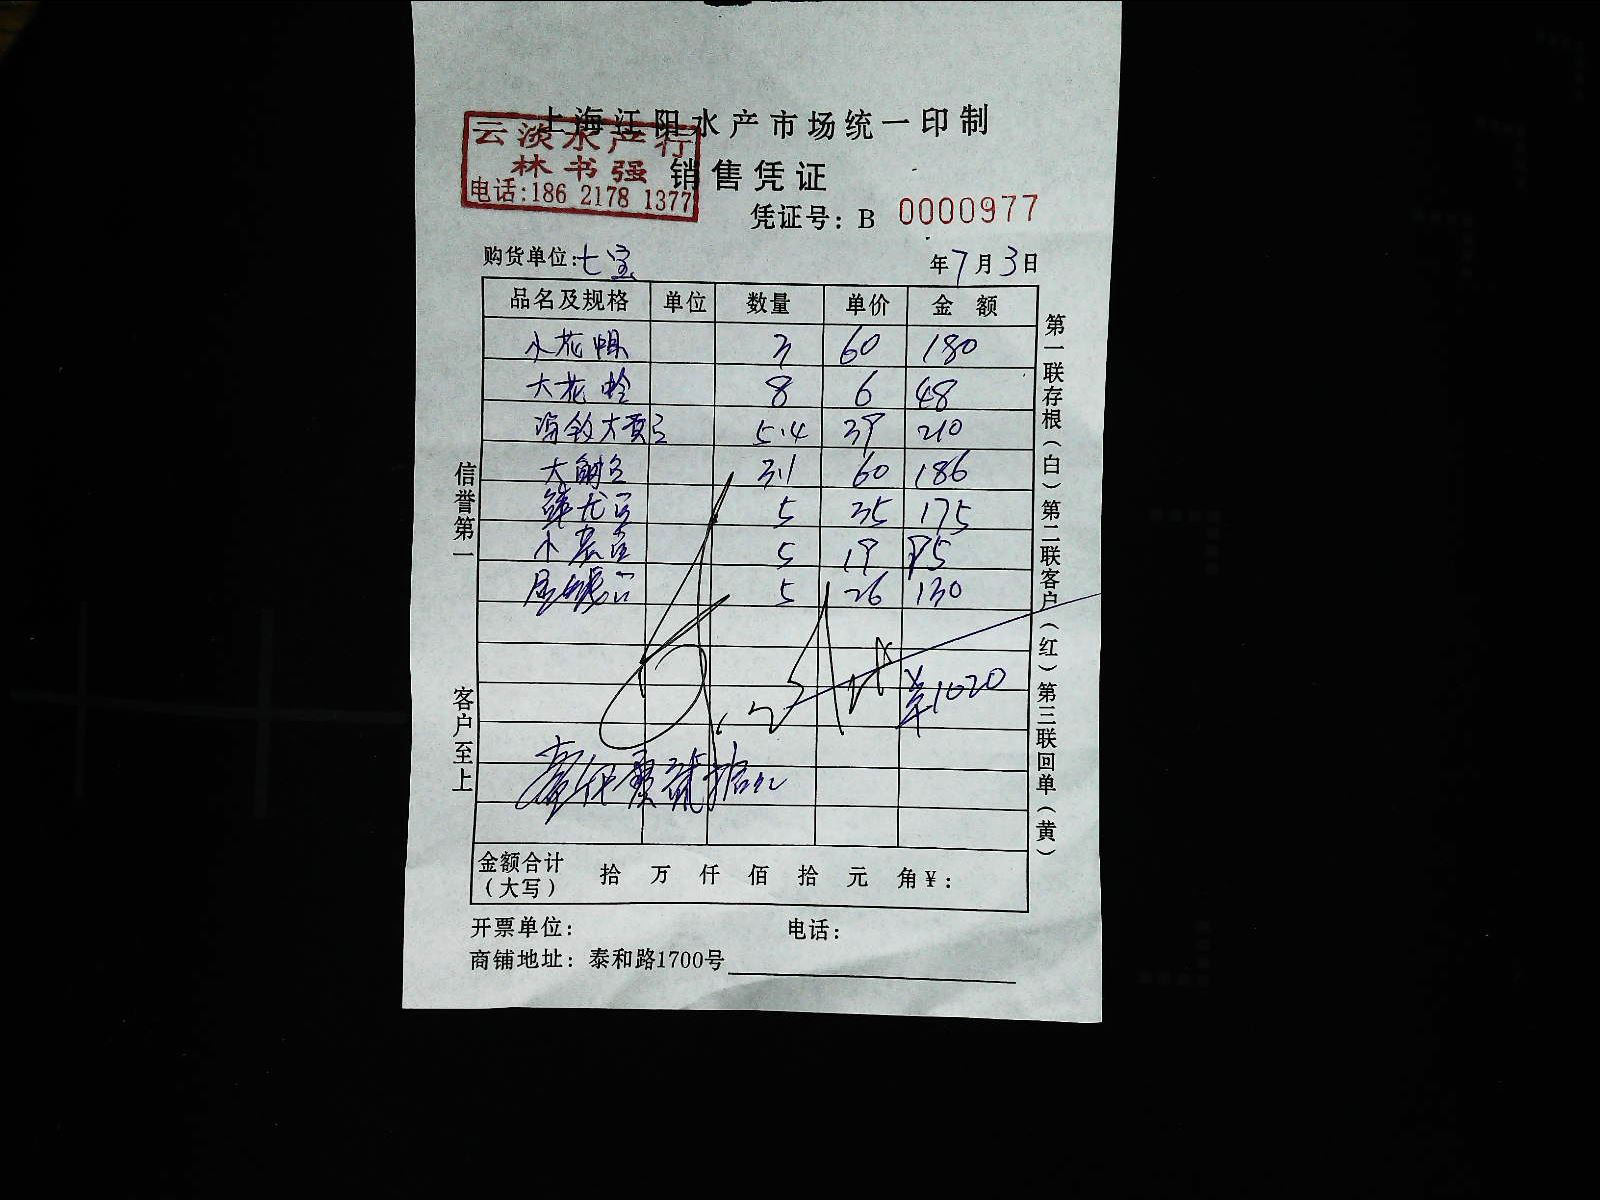 上海江阳水产市场统一印制
云淡水产行
林书强
电话:186 2178 1377
销售凭证
凭证号: B 0000977
购货单位:七宝
年7月3日
品名及规格 单位 数量 单价 金额
小花 3 60 180
大花 8 6 48
大 5.4 39 210
大 3.1 60 186
5 35 175
小 5 19 95
5 26 130
¥1020
金额合计(大写) 拾 万 仟 佰 拾 元 角 ¥:
开票单位: 电话:
商铺地址: 泰和路1700号
信誉第一 客户至上
第一联存根(白)第二联客户(红)第三联回单(黄)